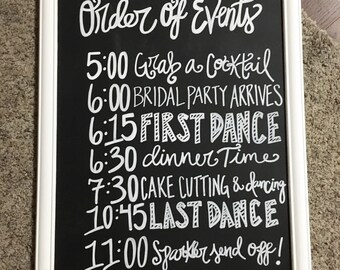 Order of Events
5:00 Grab a Cocktail
6:00 BRIDAL PARTY ARRIVES
6:15 FIRST DANCE
6:30 dinner Time
7:30 CAKE CUTTING & dancing
10:45 LAST DANCE
11:00 Sparkler send off!